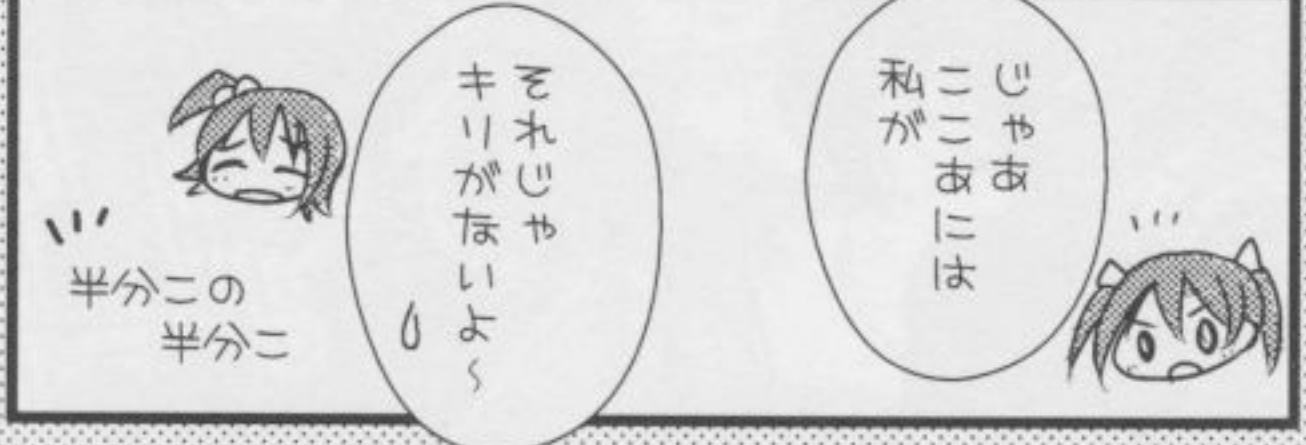 じゃあ
ここあには
私が
それじゃ
キリがないよ～
半分この
半分こ